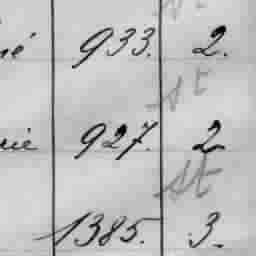 né 933. 2.
st
rie 927. 2
st
1385. 3.